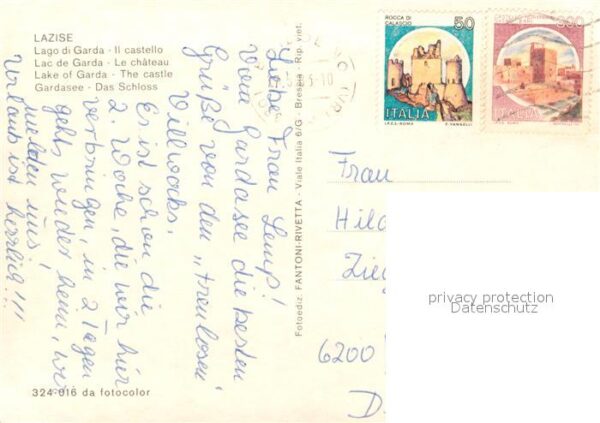 LAZISE
Lago di Garda - Il castello
Lac de Garda - Le château
Lake of Garda - The castle
Gardasee - Das Schloss
Liebe Frau Lemp!
Vom Gardasee die besten
Grüße von den "treulosen"
Willwocks.
E ist schon die
2. Woche, die wir hier
verbringen, in 2 Tagen
gehts wieder heim, wir
melden uns!
Urlaub ist herrlich!!!
324-016 da fotocolor
Fotoediz. FANTONI-RIVETTA - Viale Italia 6/G - Brescia - Rip. viet.
ROCCA DI CALASCIO
50
ITALIA
I.P.Z.S.-ROMA
F. VANGELLI
ITALIA
Frau
Hild
Zieg
6200
D
privacy protection
Datenschutz